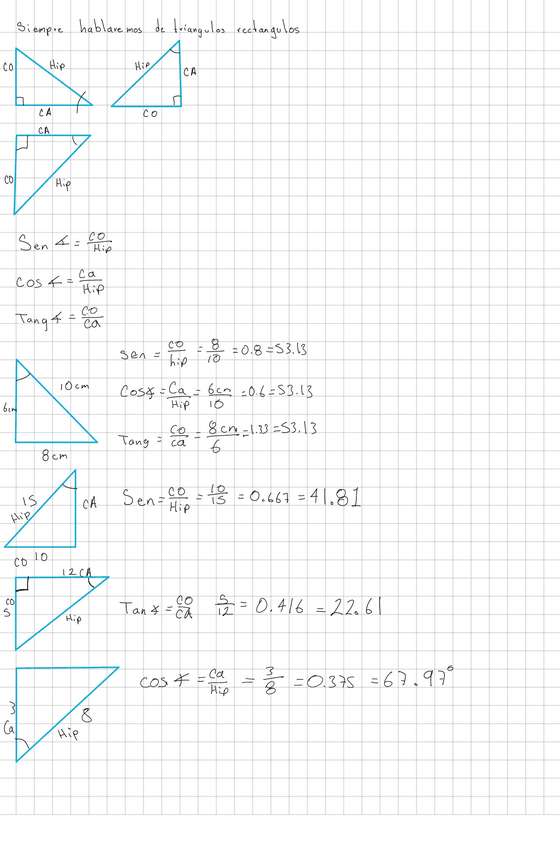 Siempre hablaremos de triangulos rectangulos
CO Hip CA
Hip CA CO
CA CO Hip
Sen ∡ = CO/Hip
Cos ∡ = Ca/Hip
Tang ∡ = CO/Ca
10cm 6cm 8cm
Sen = CO/hip = 8/10 = 0.8 = 53.13
Cos∡ = Ca/Hip = 6cm/10 = 0.6 = 53.13
Tang = CO/Ca = 8cm/6 = 1.33 = 53.13
15 Hip CA CO 10
Sen = CO/Hip = 10/15 = 0.667 = 41.81
12 CA CO 5 Hip
Tan ∡ = CO/CA 5/12 = 0.416 = 22.61
3 Ca 8 Hip
cos ∡ = Ca/Hip = 3/8 = 0.375 = 67.97°